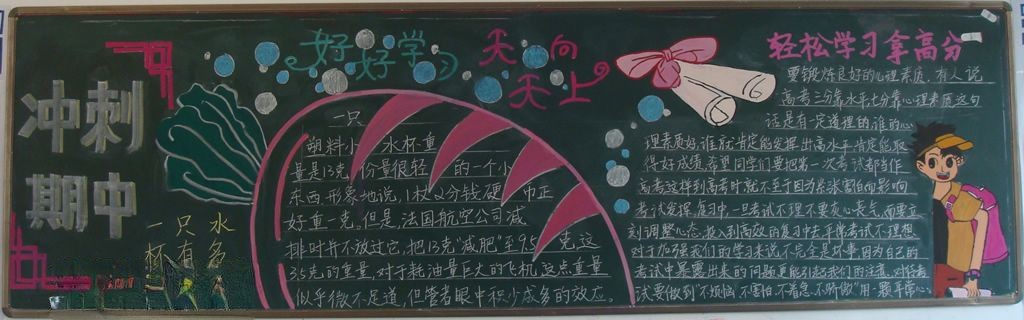 冲刺
期中
好好学习
天天向上
一只水
杯有多
一只
塑料小水杯重
量是13克,份量很轻的一个小
东西,形象地说,1枚2分钱硬币正
好重一克。但是,法国航空公司减
排时并不放过它,把13克"减肥"至9.5克,这
3.5克的重量,对于耗油量巨大的飞机,这点重量
似乎微不足道,但管者眼中积少成多的效应。
轻松学习拿高分
要锻炼良好的心理素质,有人说
高考三分靠水平七分靠心理素质这句
话是有一定道理的,谁的心
理素质好,谁就肯定能发挥出高水平肯定能取
得好成绩,希望同学们要把第一次考试都当作
高考这样到高考时就不至于因为紧张害怕而影响
考试发挥,复习中,一旦考试不理不要灰心丧气,而要立
刻调整心态,投入到高效的复习中去平常考试不理想
对于加强我们的学习来说不完全是坏事,因为自己的
考试中暴露出来的问题更能引起我们的注意,对待考
试要做到"不烦恼,不害怕,不着急,不骄傲"用一颗平常心.